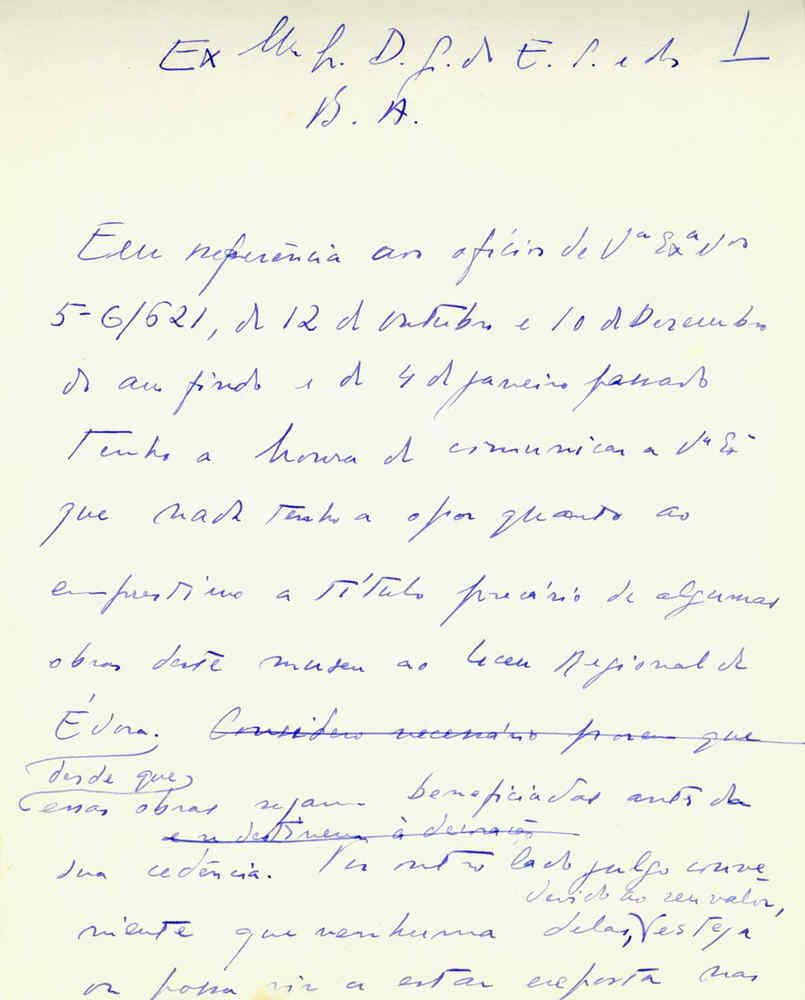 Ex Mo Sr. D. G. do E. S. e das 1
B. A.
Em referência aos ofícios de Vª Exª Nos
5-G/621, de 12 de outubro e 10 de Dezembro
do ano findo e de 4 de janeiro passado
Tenho a honra de comunicar a Vª Exª
que nada tenho a opor quanto ao
emprestimo a título precário de algumas
obras deste museu ao Liceu Regional de
Évora. Considero necessário porem que
desde que
essas obras sejam beneficiadas antes da
e se destinem à decoração
sua cedência. Por outro lado julgo conve-
devido ao seu valor,
niente que nenhuma delas, esteja
ou possa vir a estar exposta nas